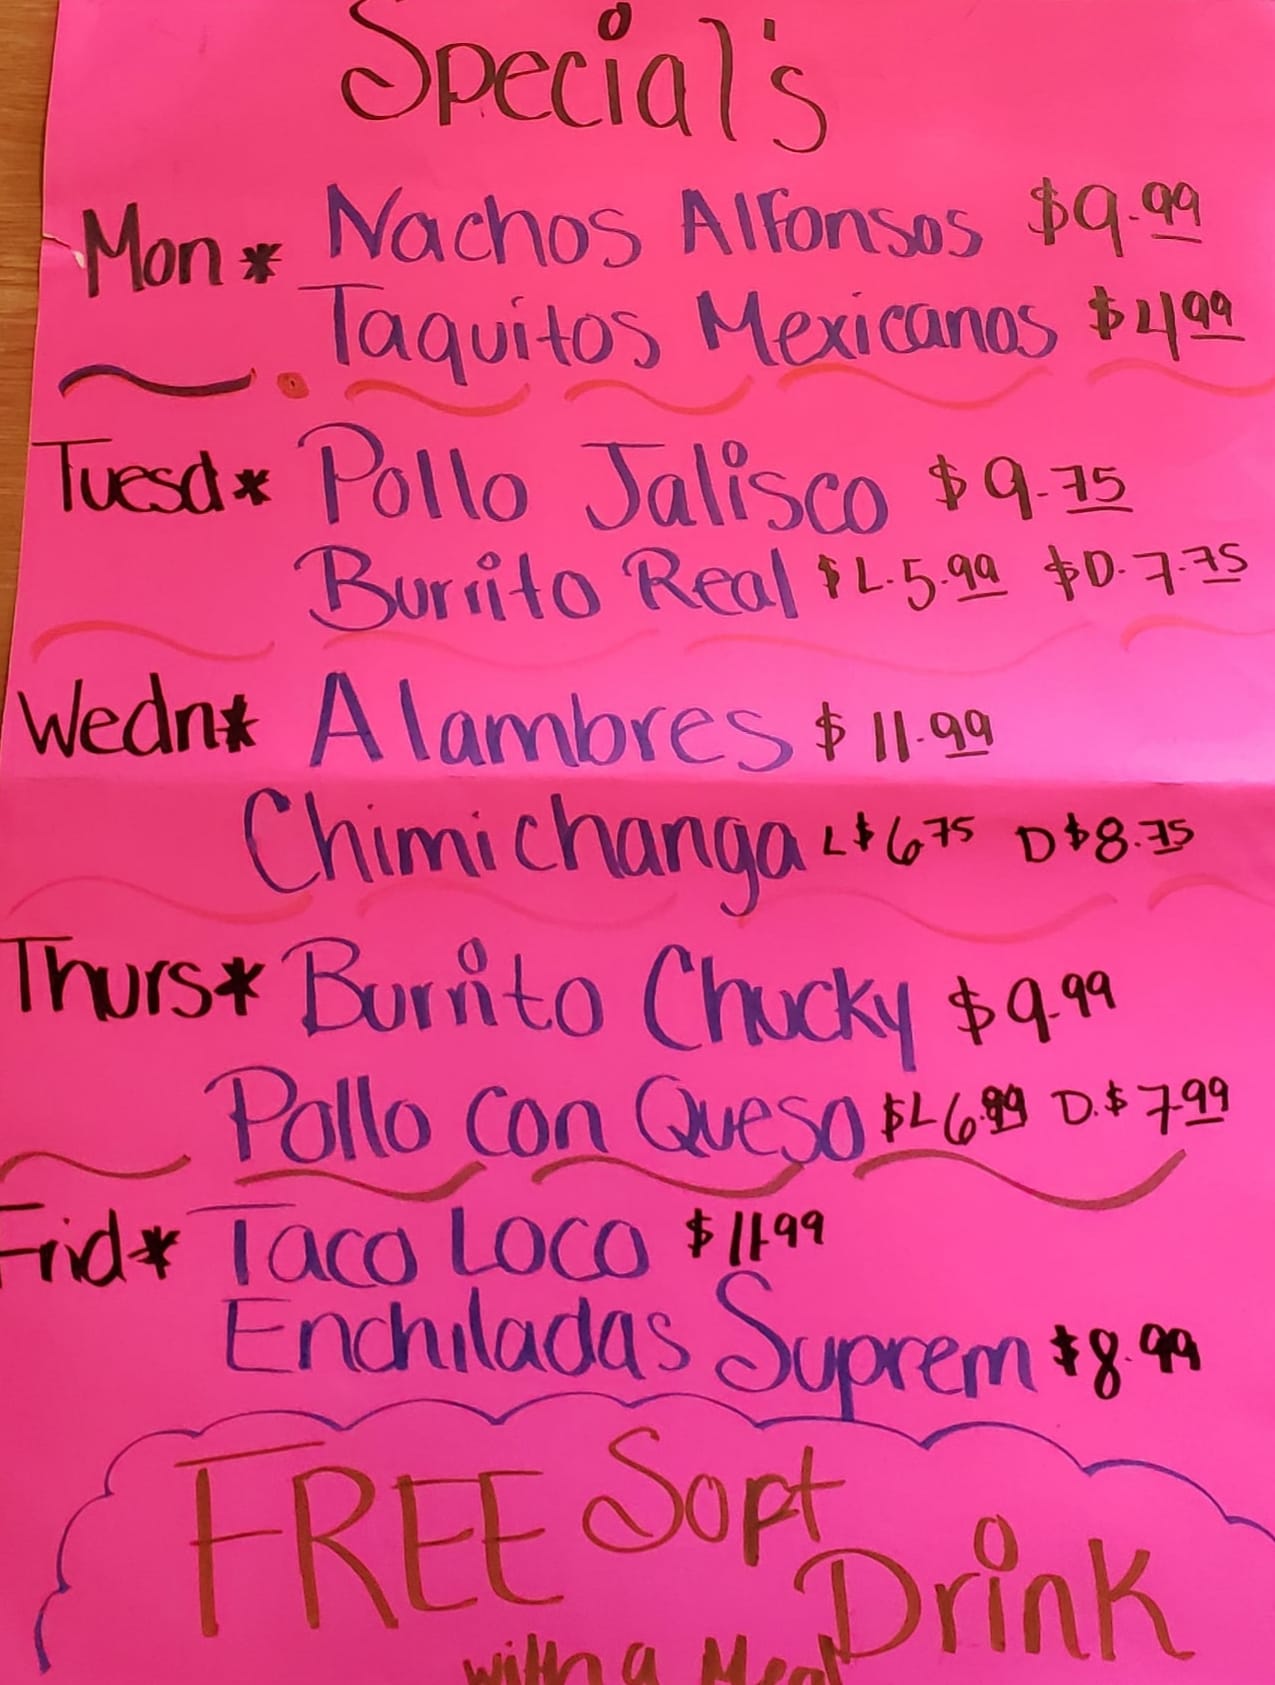 Special's
Mon* Nachos Alfonsos $9.99
Taquitos Mexicanos $4.99
Tuesd* Pollo Jalisco $9.75
Burrito Real $L.5.99 $D.7.75
Wedn* Alambres $11.99
Chimichanga L$6.75 D$8.75
Thurs* Burrito Chucky $9.99
Pollo con Queso $L6.99 D.$7.99
Frid* Taco Loco $11.99
Enchiladas Suprem $8.99
FREE Soft
Drink
with a Meal